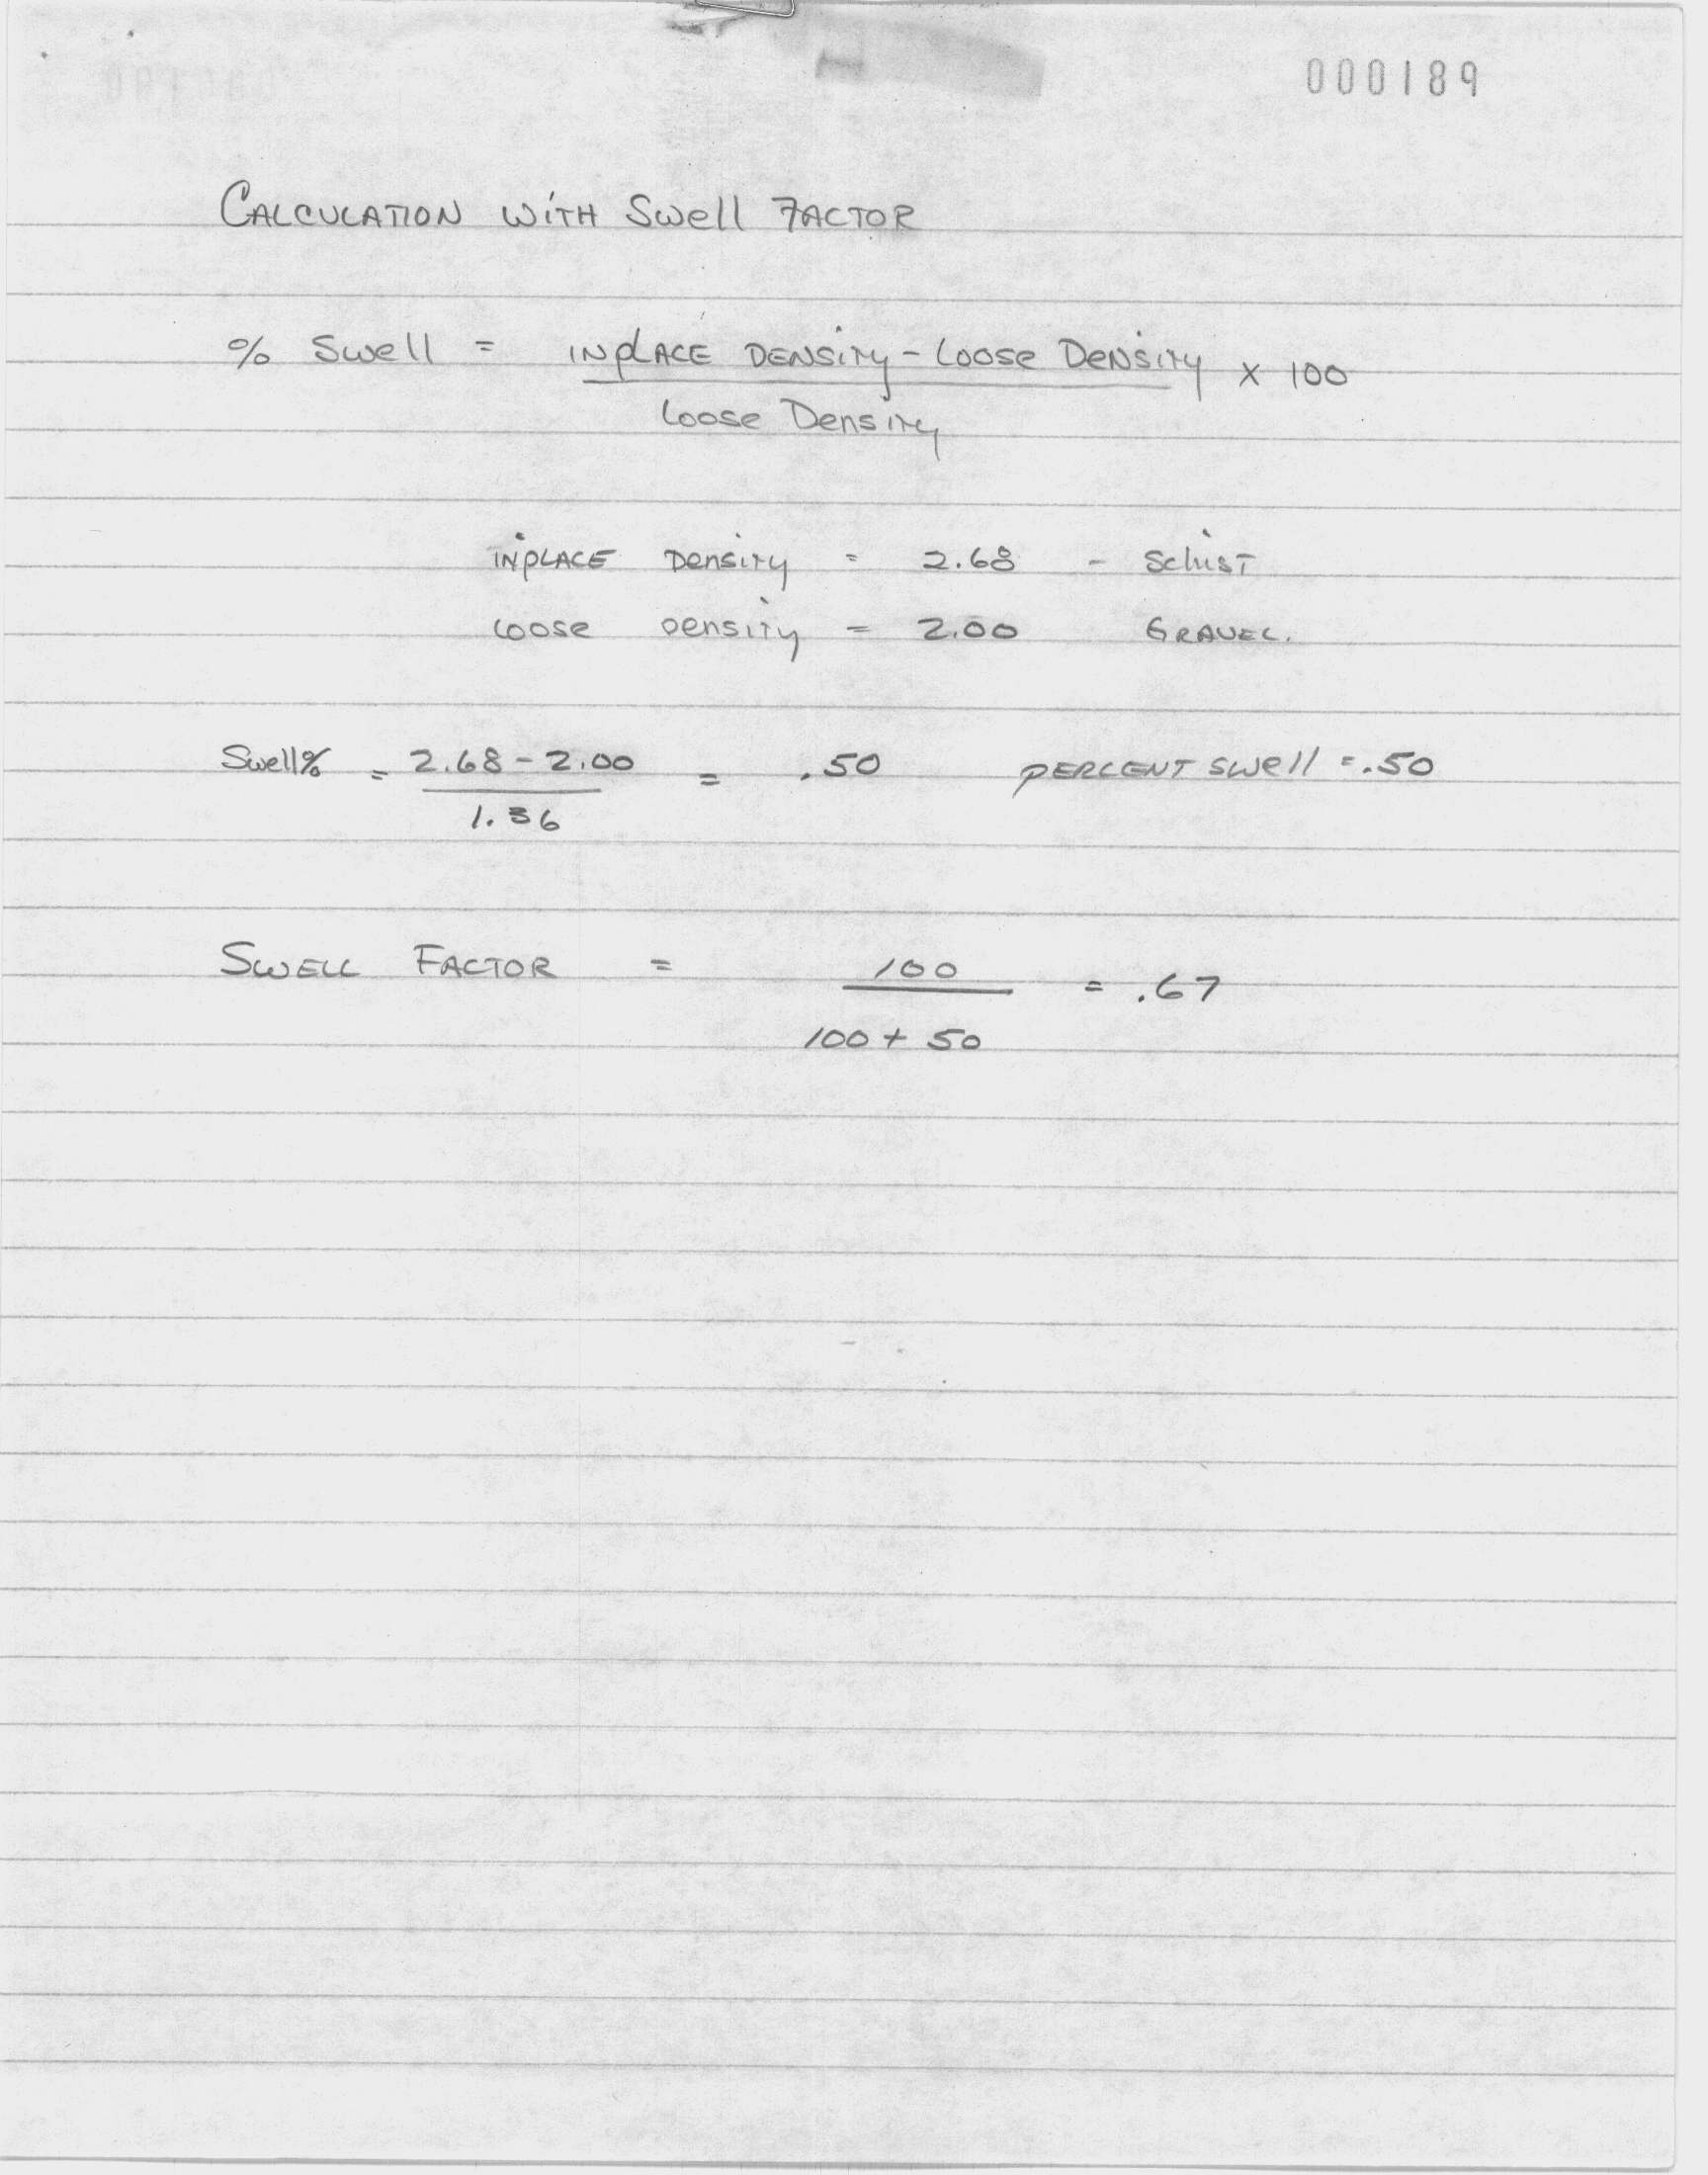 000189
CALCULATION WITH Swell FACTOR
% Swell = INPLACE DENSITY - Loose DENSITY x 100
Loose Density
INPLACE Density = 2.68 - Schist
Loose Density = 2.00 GRAVEL.
Swell% = 2.68 - 2.00 = .50 PERCENT Swell = .50
1.36
SWELL FACTOR = 100 = .67
100 + 50